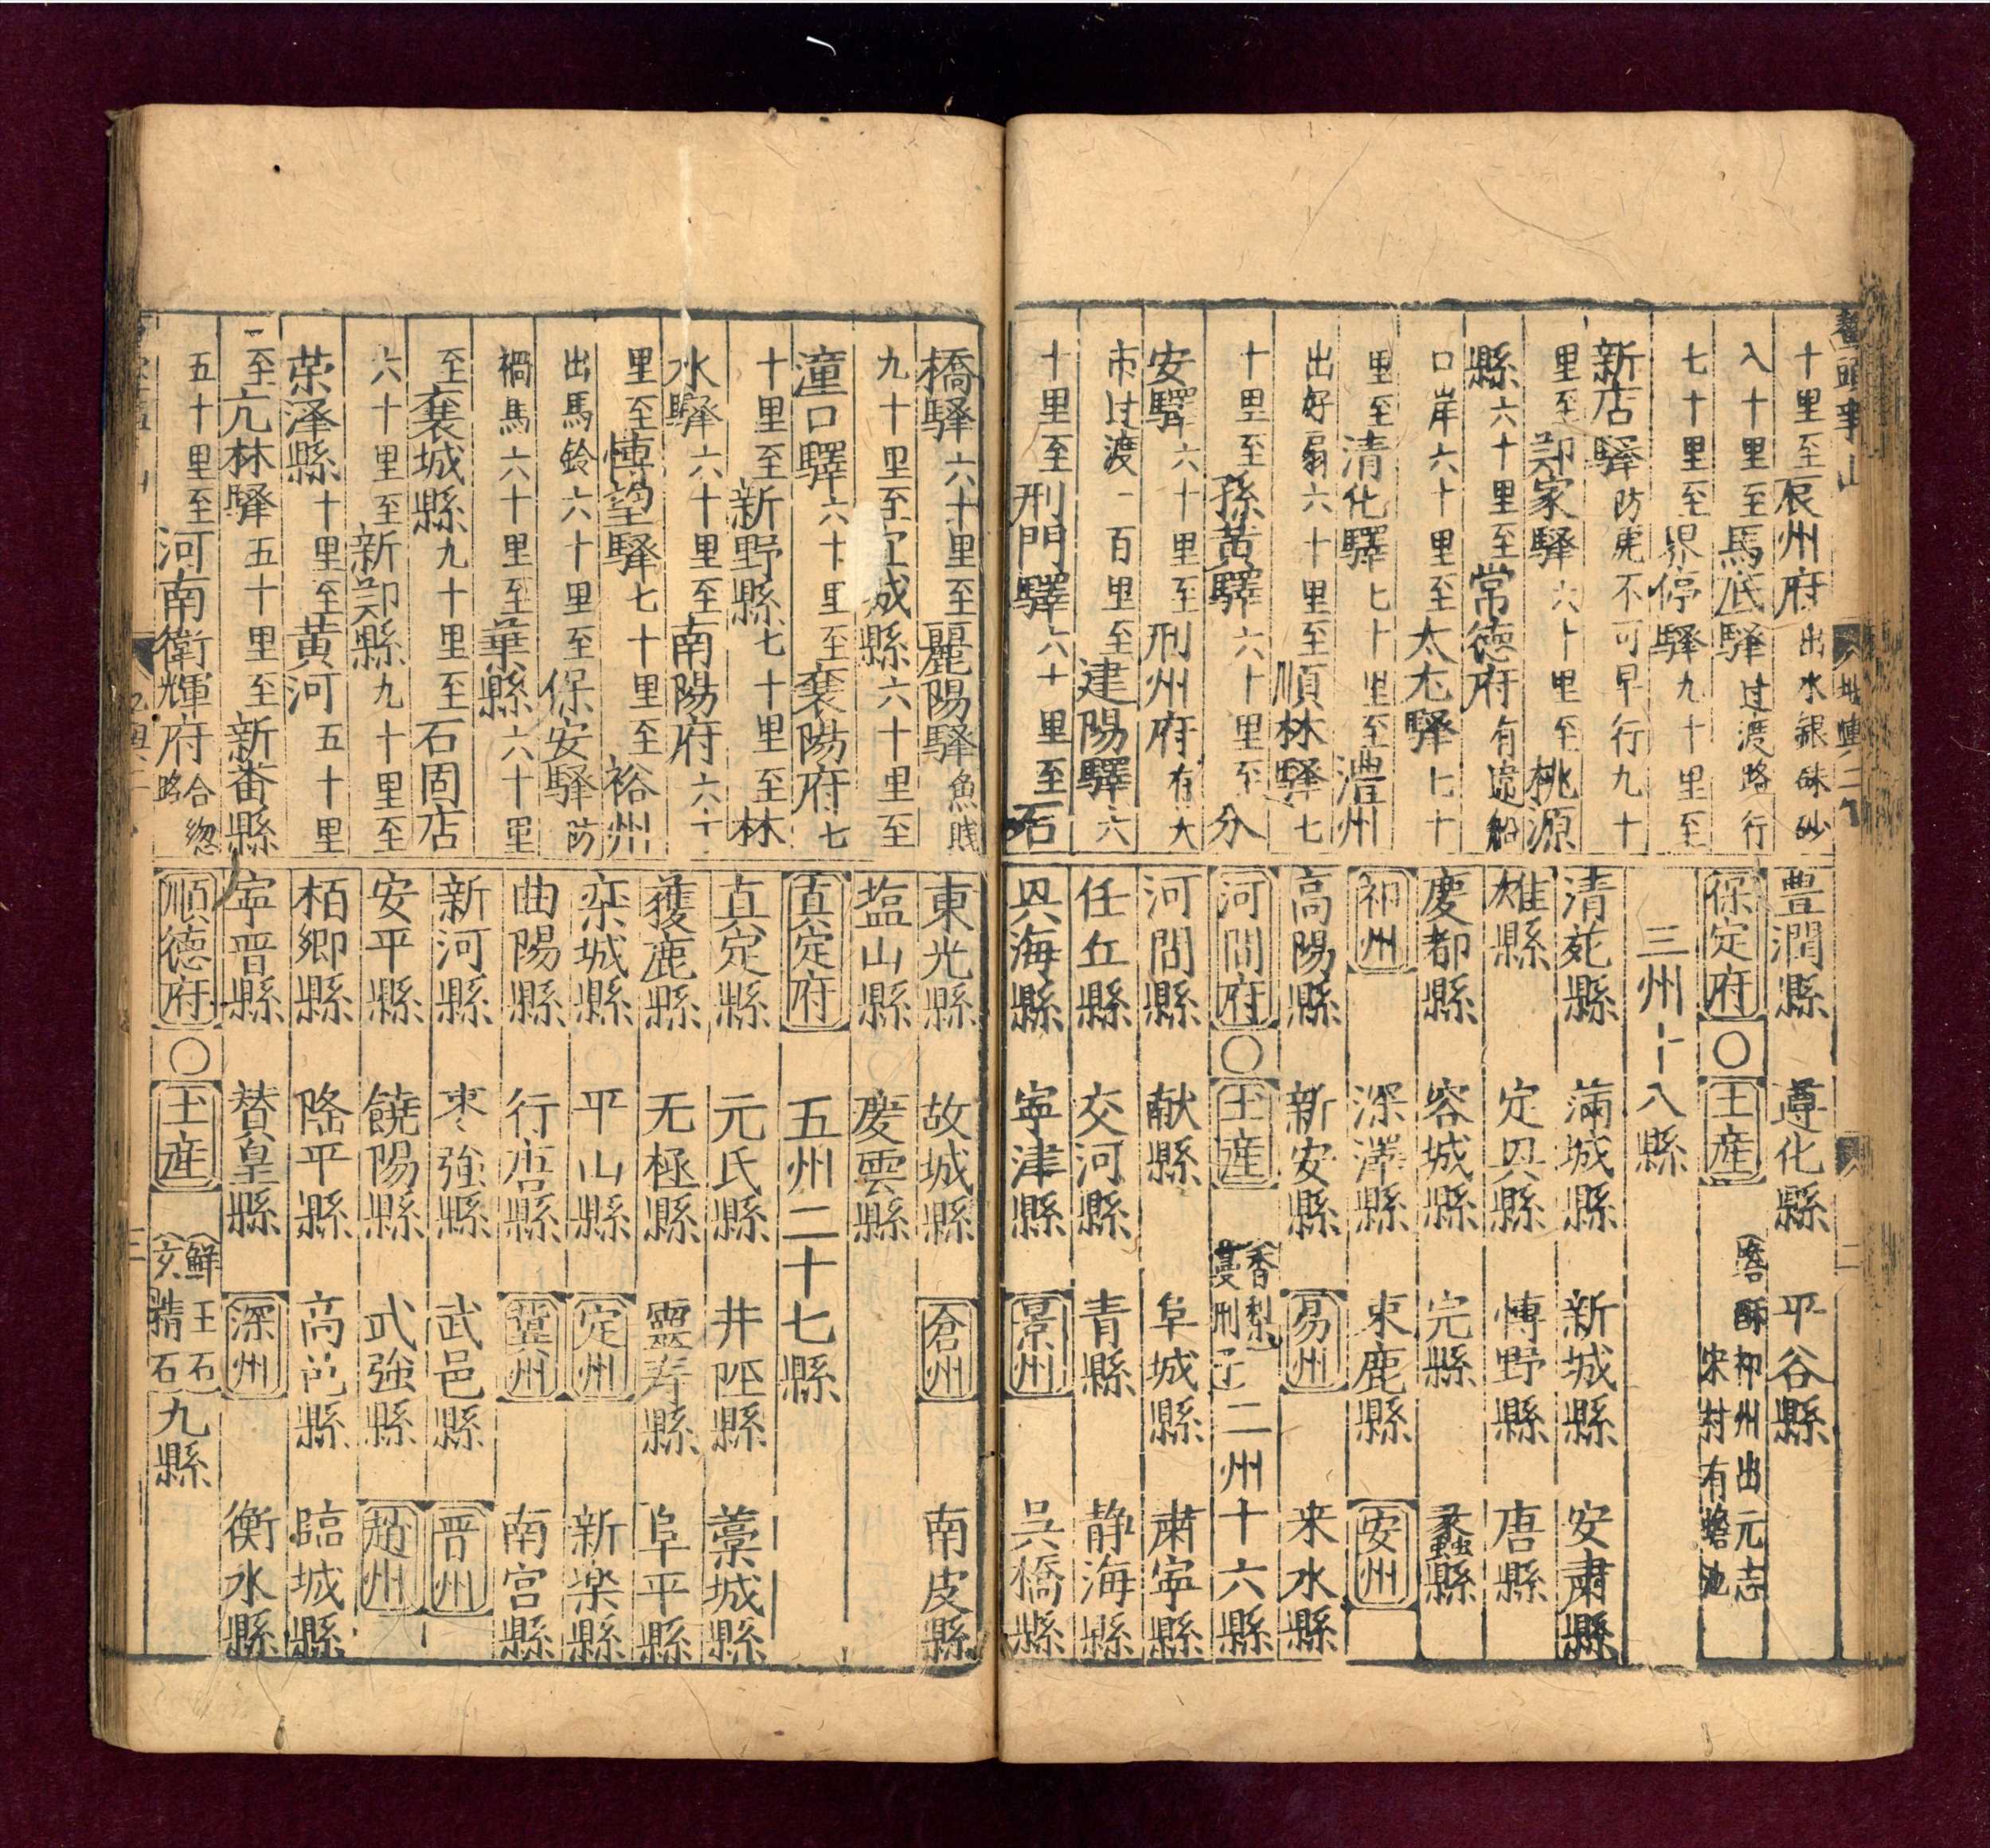 十里至辰州府出水銀硃砂
入十里至馬底驛过渡路行
七十里至界停驛九十里至
新店驛防虎不可早行九十
里至郑家驛六十里至桃源
縣六十里至常德府有遠船
口岸六十里至太尢驛七十
里至清化驛七十里至澧州
出好扇六十里至順林驛七
十里至孫黃驛六十里至分
安驛六十里至刑州府有大
市过渡一百里至建陽驛六
十里至刑門驛六十里至石
豊潤縣 遵化縣 平谷縣
保定府 〇 土産 酥 祁州出元志 宋村有蟾池
三州十八縣
清苑縣 滿城縣 新城縣 安肅縣
雄縣 定具縣 愽野縣 唐縣
慶都縣 容城縣 完縣 蠡縣
祁州 深澤縣 束鹿縣 安州
高陽縣 新安縣 易州 来水縣
河間府 〇 土産 香梨 蔓刑子 二州十六縣
河間縣 献縣 阜城縣 肅寧縣
任丘縣 交河縣 青縣 静海縣
具海縣 寧津縣 景州 吳橋縣
橋驛六十里至麗陽驛魚賎
九十里至宜城縣六十里至
潼口驛六十里至襄陽府七
十里至新野縣七十里至林
水驛六十里至南陽府六十
里至愽望驛七十里至裕州
出馬鈴六十里至保安驛防
禍馬六十里至葉縣六十里
至襄城縣九十里至石固店
六十里至新郑縣九十里至
荣泽縣十里至黃河五十里
至亢林驛五十里至新番縣
五十里至河南衛輝府合㧾路
東光縣 故城縣 倉州 南皮縣
塩山縣 慶雲縣
真定府 五州二十七縣
真定縣 元氏縣 井陘縣 藁城縣
獲鹿縣 无極縣 靈寿縣 阜平縣
栾城縣 平山縣 定州 新楽縣
曲陽縣 行唐縣 冀州 南宮縣
新河縣 枣強縣 武邑縣 晋州
安平縣 饒陽縣 武強縣 趙州
栢鄉縣 隆平縣 高邑縣 臨城縣
寧晋縣 賛皇縣 深州 衡水縣
順德府 〇 土産 鮮玉石 玄精石 九縣